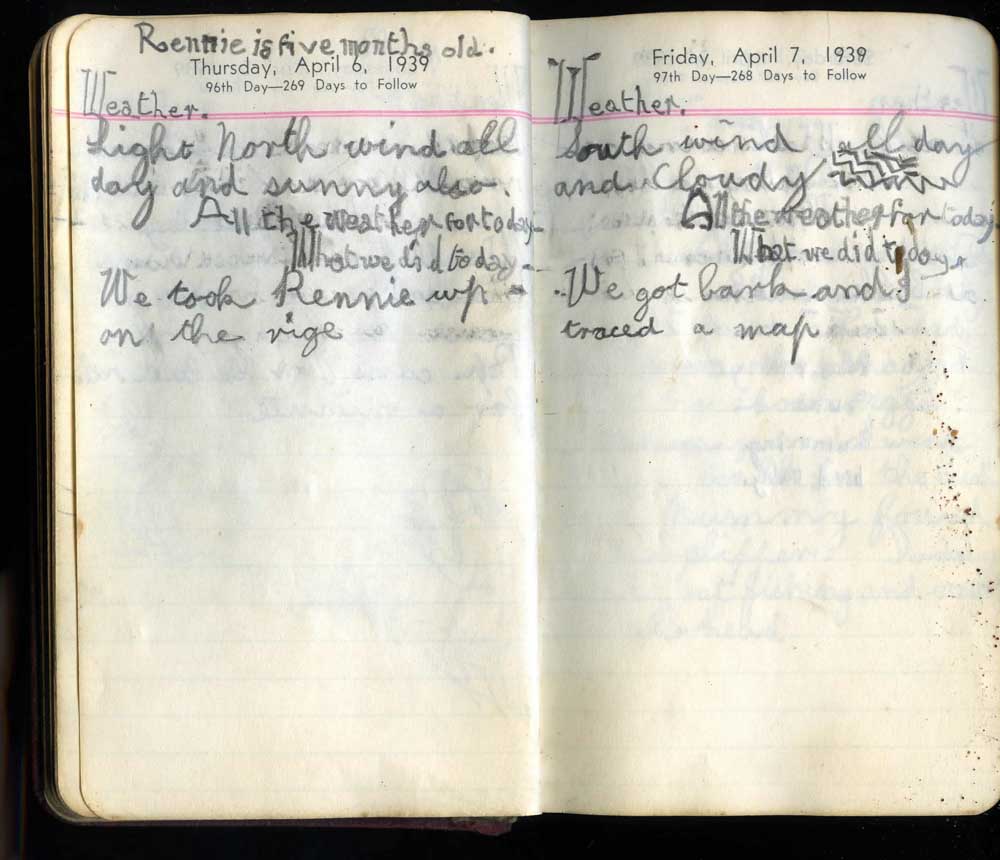 Rennie is five months old.
Thursday, April 6, 1939
96th Day—269 Days to Follow
Weather.
Light North wind all
day and sunny also.
All the weather for today
What we did today
We took Rennie up
on the rige
Friday, April 7, 1939
97th Day—268 Days to Follow
Weather.
South wind all day
and Cloudy
All the weather for today
What we did today
We got bark and I
traced a map